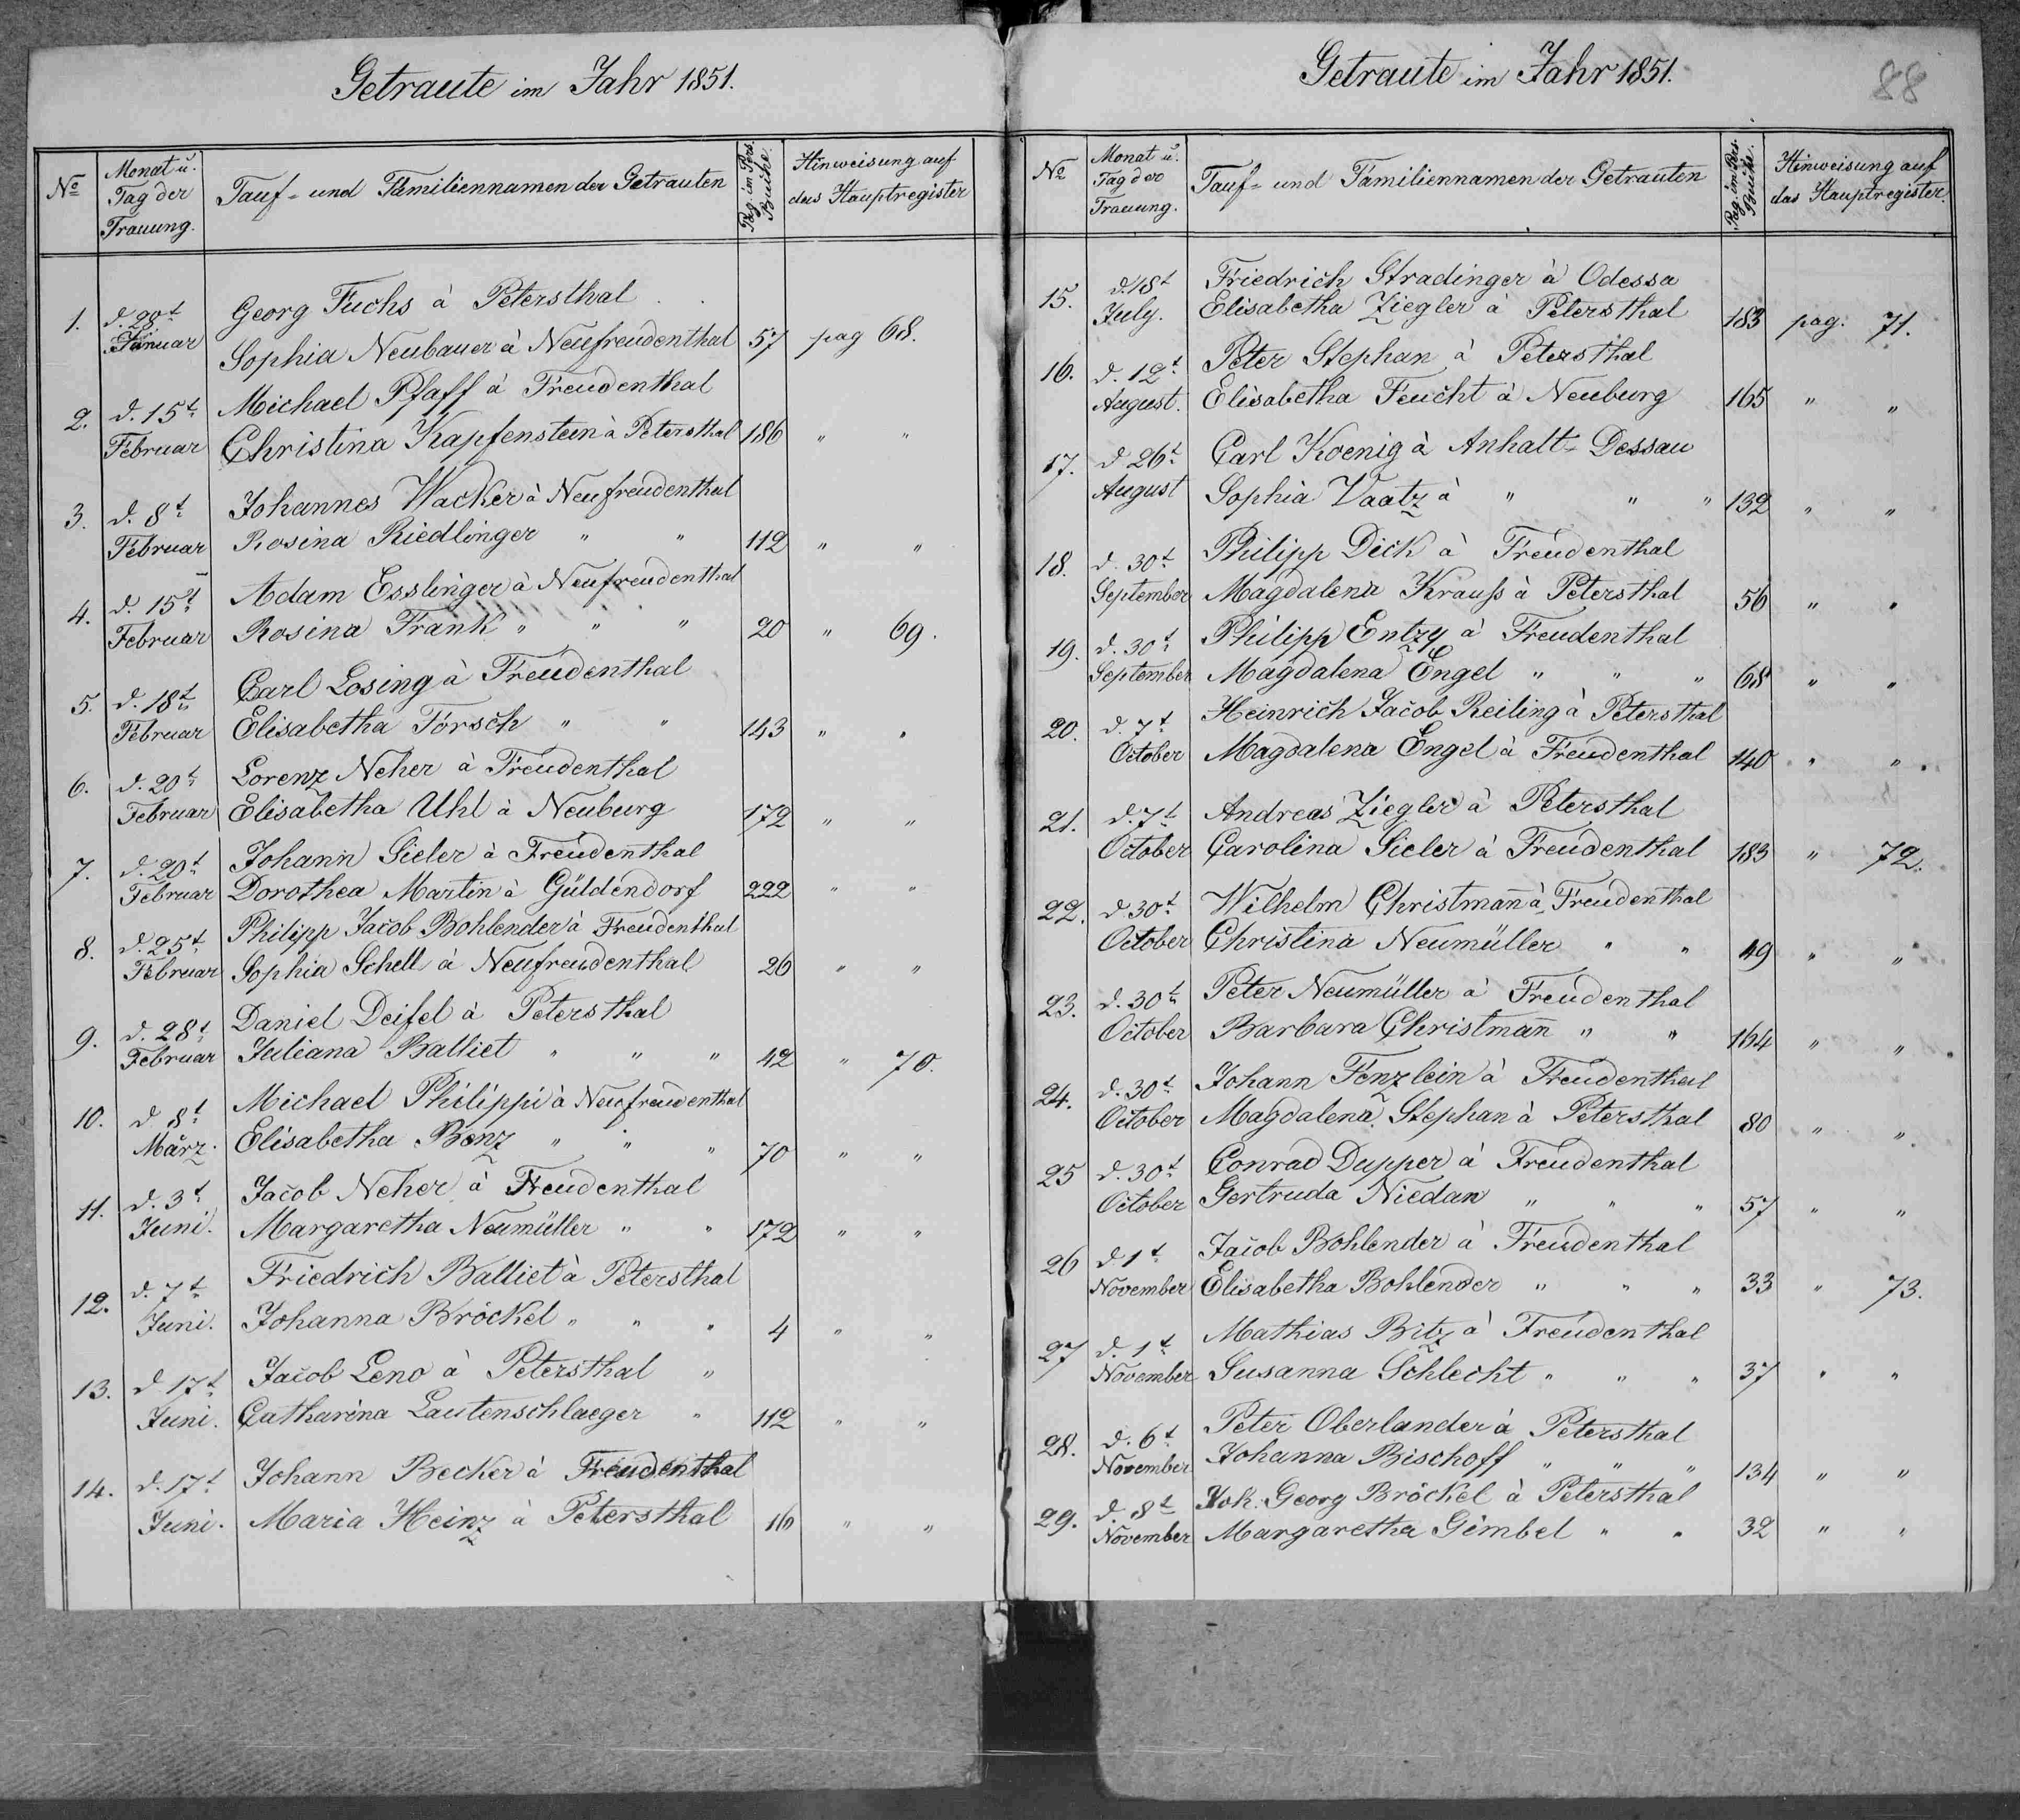 Getraute im Jahr 1851.
No Monat u. Tag der Trauung. Tauf- und Familiennamen der Getrauten Pag. im Pers. Buche. Hinweisung auf das Hauptregister
1. d. 28t Georg Fuchs à Petersthal
Januar Sophia Neubauer à Neufreudenthal 57 pag 68.
2. d. 15t Michael Pfaff à Freudenthal
Februar Christina Kapfenstein à Petersthal 186 " "
3. d. 8t Johannes Wacker à Neufreudenthal
Februar Rosina Riedlinger " " 112 " "
4. d. 15t Adam Esslinger à Neufreudenthal
Februar Rosina Frank " " " 20 " 69.
5. d. 18t Carl Losing à Freudenthal
Februar Elisabetha Törsch " " 143 " "
6. d. 20t Lorenz Neher à Freudenthal
Februar Elisabetha Uhl à Neuburg 172 " "
7. d. 20t Johann Sieler à Freudenthal
Februar Dorothea Martin à Güldendorf 222 " "
8. d. 25t Philipp Jacob Bohlender à Freudenthal
Februar Sophia Schell à Neufreudenthal 26 " "
9. d. 28t Daniel Deifel à Petersthal
Februar Juliana Balliet " " " 42 " 70.
10. d 8t Michael Philippi à Neufreudenthal
März. Elisabetha Benz " " " 70 " "
11. d. 3t Jacob Neher à Freudenthal
Juni. Margaretha Neumüller " " 172 " "
12. d. 7t Friedrich Balliet à Petersthal
Juni. Johanna Bröckel " " " 4 " "
13. d 17t Jacob Leno à Petersthal "
Juni. Catharina Lautenschlaeger " 112 " "
14. d. 17t Johann Becker à Freudenthal
Juni. Maria Heinz à Petersthal 16 " "
Getraute im Jahr 1851.
88
No Monat u. Tag der Trauung. Tauf- und Familiennamen der Getrauten Pag. im Pers. Buche. Hinweisung auf das Hauptregister.
15. d. 18t Friedrich Stradinger à Odessa
July. Elisabetha Ziegler à Petersthal 183 pag. 71.
16. d. 12t Peter Stephan à Petersthal
August. Elisabetha Feucht à Neuburg 165 " "
17. d 26t Carl Koenig à Anhalt-Dessau
August Sophia Vaatz à " " " 132 " "
18. d. 30t Philipp Dick à Freudenthal
September Magdalena Krauß à Petersthal 56 " "
19. d. 30t Philipp Entzy à Freudenthal
September Magdalena Engel " " " 68 " "
20. d. 7t Heinrich Jacob Reiling à Petersthal
October Magdalena Engel à Freudenthal 140 " "
21. d. 7t Andreas Ziegler à Petersthal
October Carolina Sieler à Freudenthal 183 " 72.
22. d 30t Wilhelm Christmañ à Freudenthal
October Christina Neumüller " " 49 " "
23. d. 30t Peter Neumüller à Freudenthal
October Barbara Christmañ " " 164 " "
24. d. 30t Johann Fenzlein à Freudenthal
October Magdalena Stephan à Petersthal 80 " "
25 d. 30t Conrad Dupper à Freudenthal
October Gertruda Niedan " " " 57 " "
26 d 1t Jacob Bohlender à Freudenthal
November Elisabetha Bohlender " " " 33 " 73.
27 d. 1t Mathias Bitz à Freudenthal
November Susanna Schlecht " " " 37 " "
28. d. 6t Peter Oberlander à Petersthal
November Johanna Bischoff " " " 134 " "
29. d. 8t Joh. Georg Bröckel à Petersthal
November Margaretha Gimbel " " 32 " "